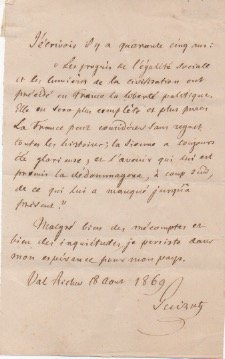 J'écrivais il y a quarante cinq ans:
« Les progrès de l'égalité sociale
et les lumières de la civilisation ont
précédé en France la liberté politique.
Elle en sera plus complète et plus pure.
La France peut considérer sans regret
toutes les histoires; la sienne a toujours
été glorieuse; et l'avenir qui lui est
promis la dédommagera, à coup sûr,
de ce qui lui a manqué jusqu'à
présent. »
Malgré bien des mécomptes et
bien des inquiétudes, je persiste dans
mon espérance pour mon pays.
Val Richer 18 Août 1869
Guizot